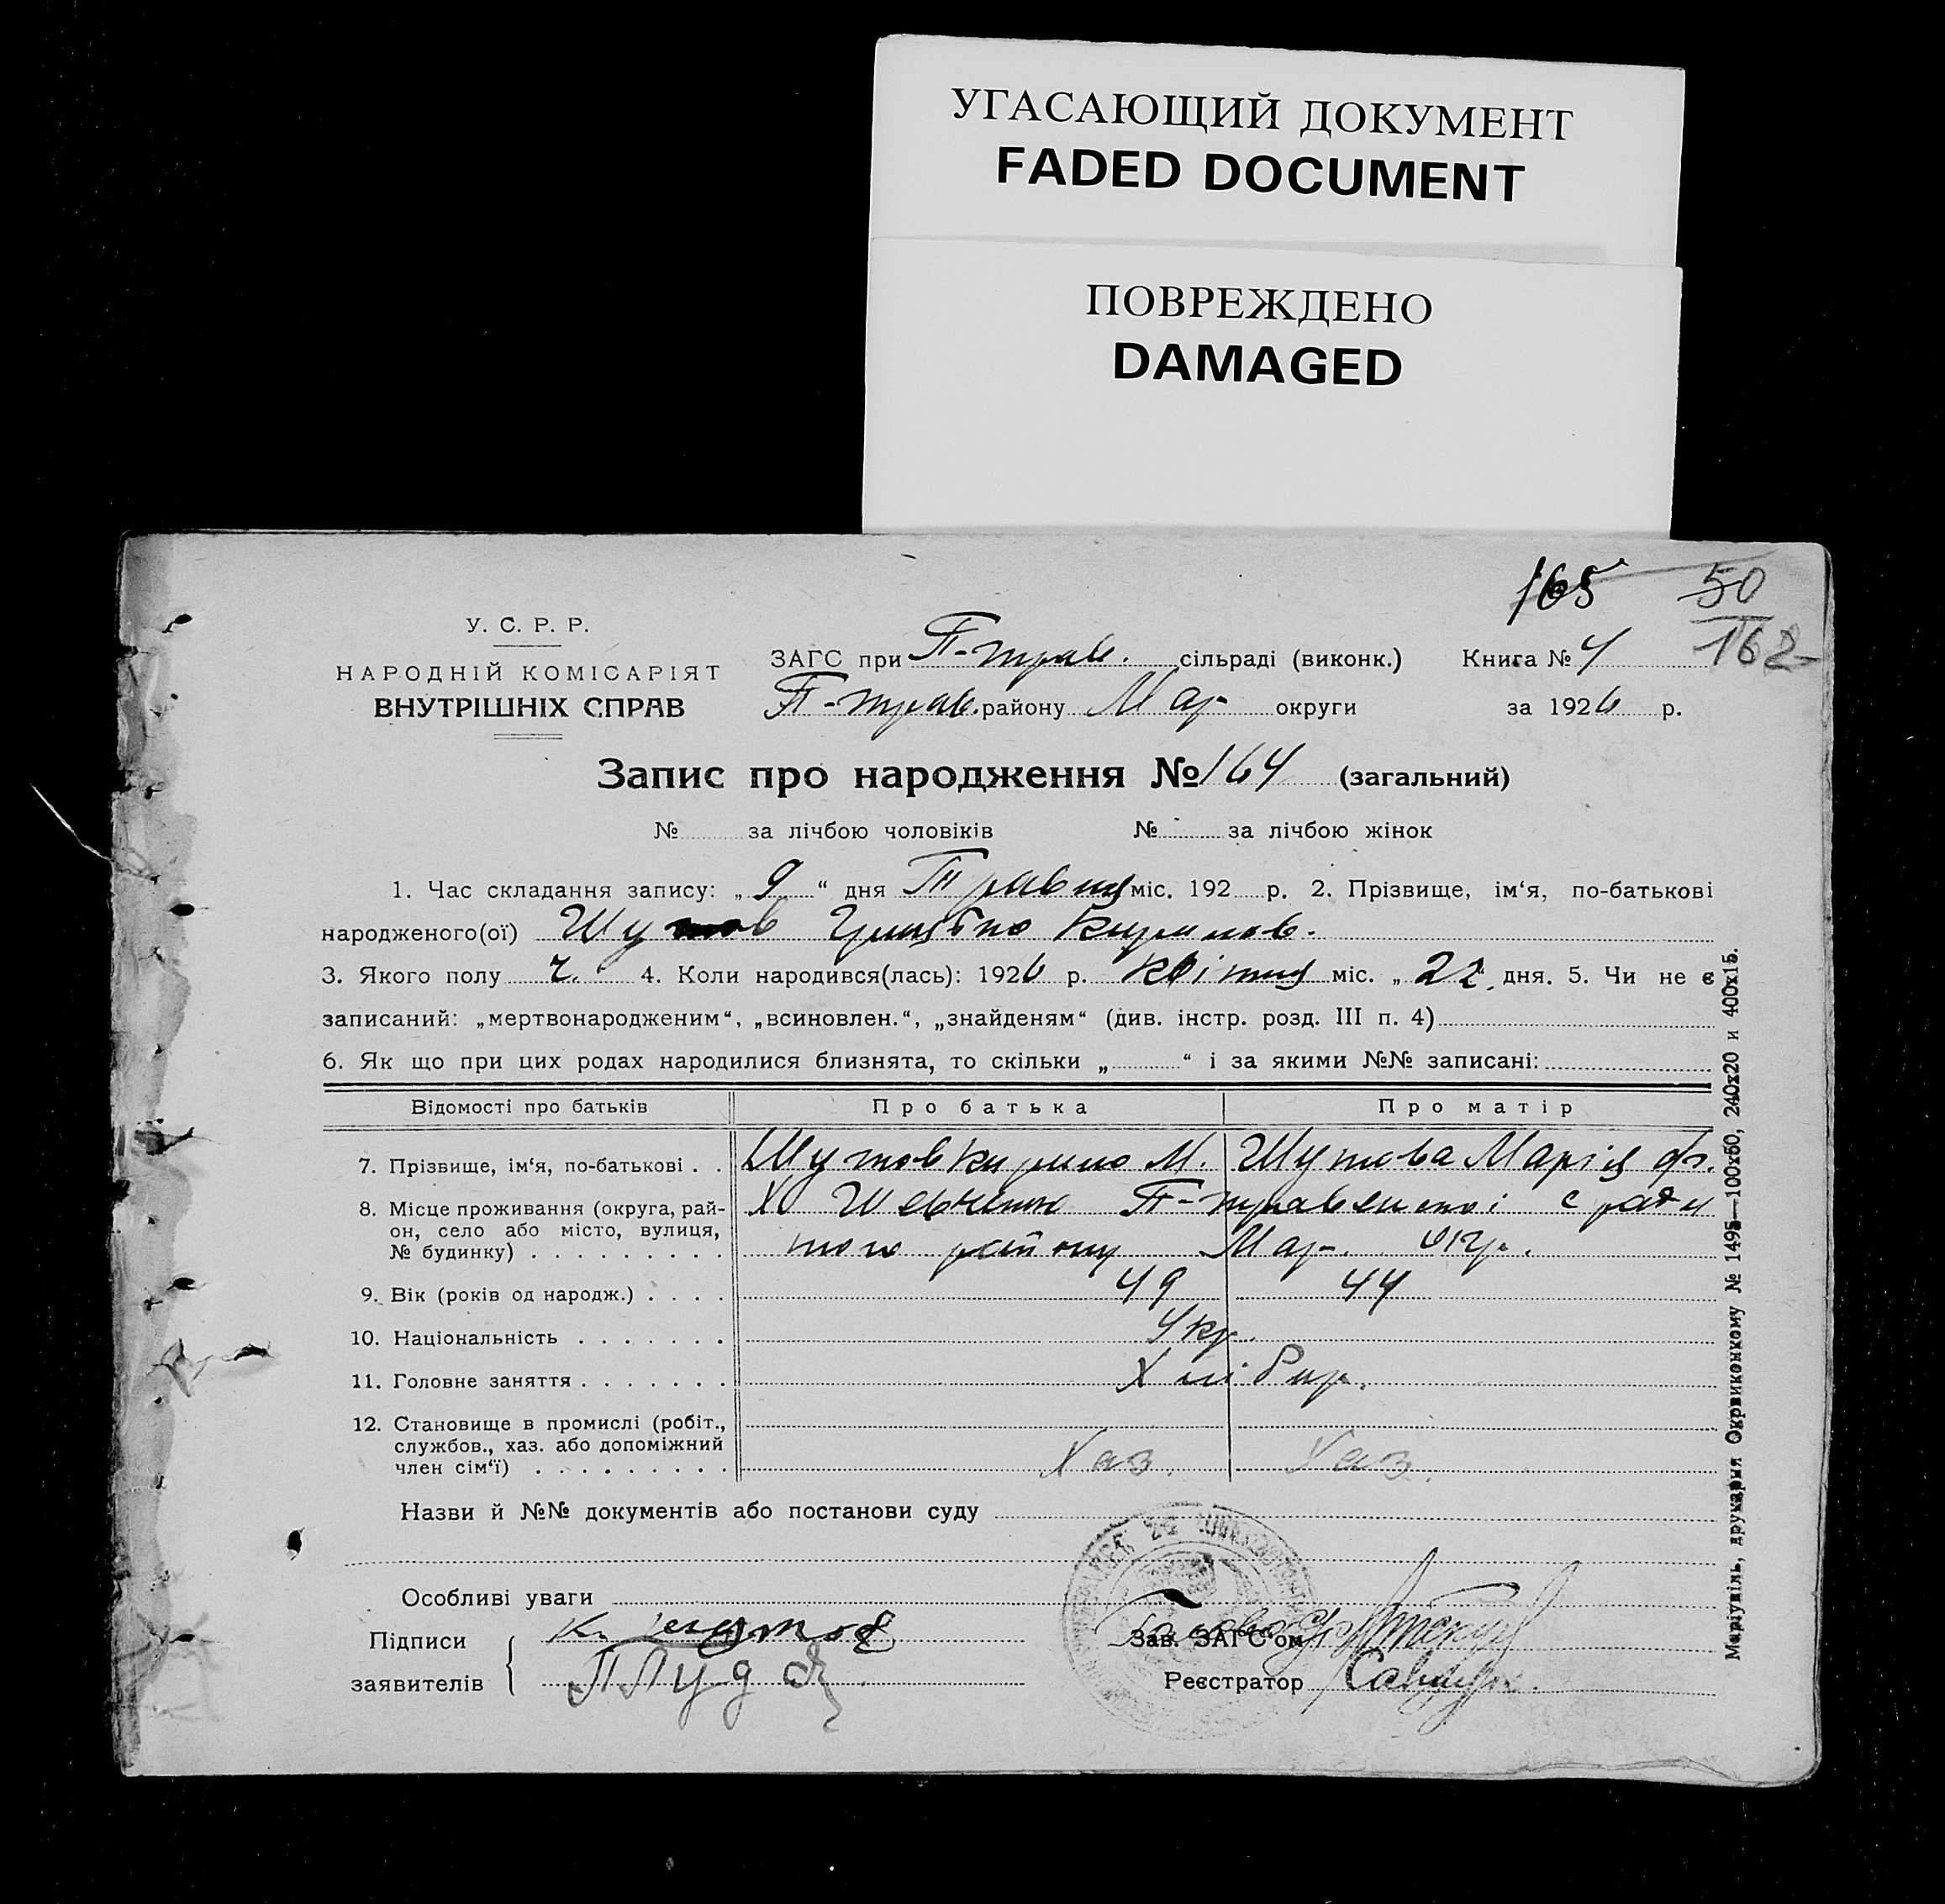 УГАСАЮЩИЙ ДОКУМЕНТ
FADED DOCUMENT
ПОВРЕЖДЕНО
DAMAGED
165 50
162
У. С. Р. Р.
НАРОДНІЙ КОМІСАРІЯТ
ВНУТРІШНІХ СПРАВ
ЗАГС при П-трав. сільраді (виконк.) Книга № 4
П-трав. району Мар- округи за 1926 р.
Запис про народження № 164 (загальний)
№ за лічбою чоловіків № за лічбою жінок
1. Час складання запису: „ 9 “ дня Травня міс. 192 р. 2. Прізвище, ім‘я, по-батькові
народженого(ої) Шутов Кирилов.
3. Якого полу ч. 4. Коли народився(лась): 1926 р. квітня міс. „ 22 дня. 5. Чи не є
записаний: „мертвонародженим“, „всиновлен.“, „знайденям“ (див. інстр. розд. III п. 4)
6. Як що при цих родах народилися близнята, то скільки „ “ і за якими №№ записані:
Відомості про батьків Про батька Про матір
7. Прізвище, ім‘я, по-батькові . . Шутов Кирило М. Шутова Марія Ф.
8. Місце проживання (округа, рай-
он, село або місто, вулиця,
№ будинку) . . . . . . . . .
Х Шевченко П-травенської с ради
того району Мар. окр.
9. Вік (років од народж.) . . . . 49 44
10. Національність . . . . . . . Укр.
11. Головне заняття . . . . . . . Хлібор.
12. Становище в промислі (робіт.,
службов., хаз. або допоміжний
член сім‘ї) . . . . . . . . . Хаз. Хаз.
Назви й №№ документів або постанови суду
Особливі уваги
Підписи К. Шутов Зав. ЗАГС‘ом
заявителів Реєстратор
Маріупіль, друкарня Окрвиконкому № 1495—100х50, 240х20 и 400х15.